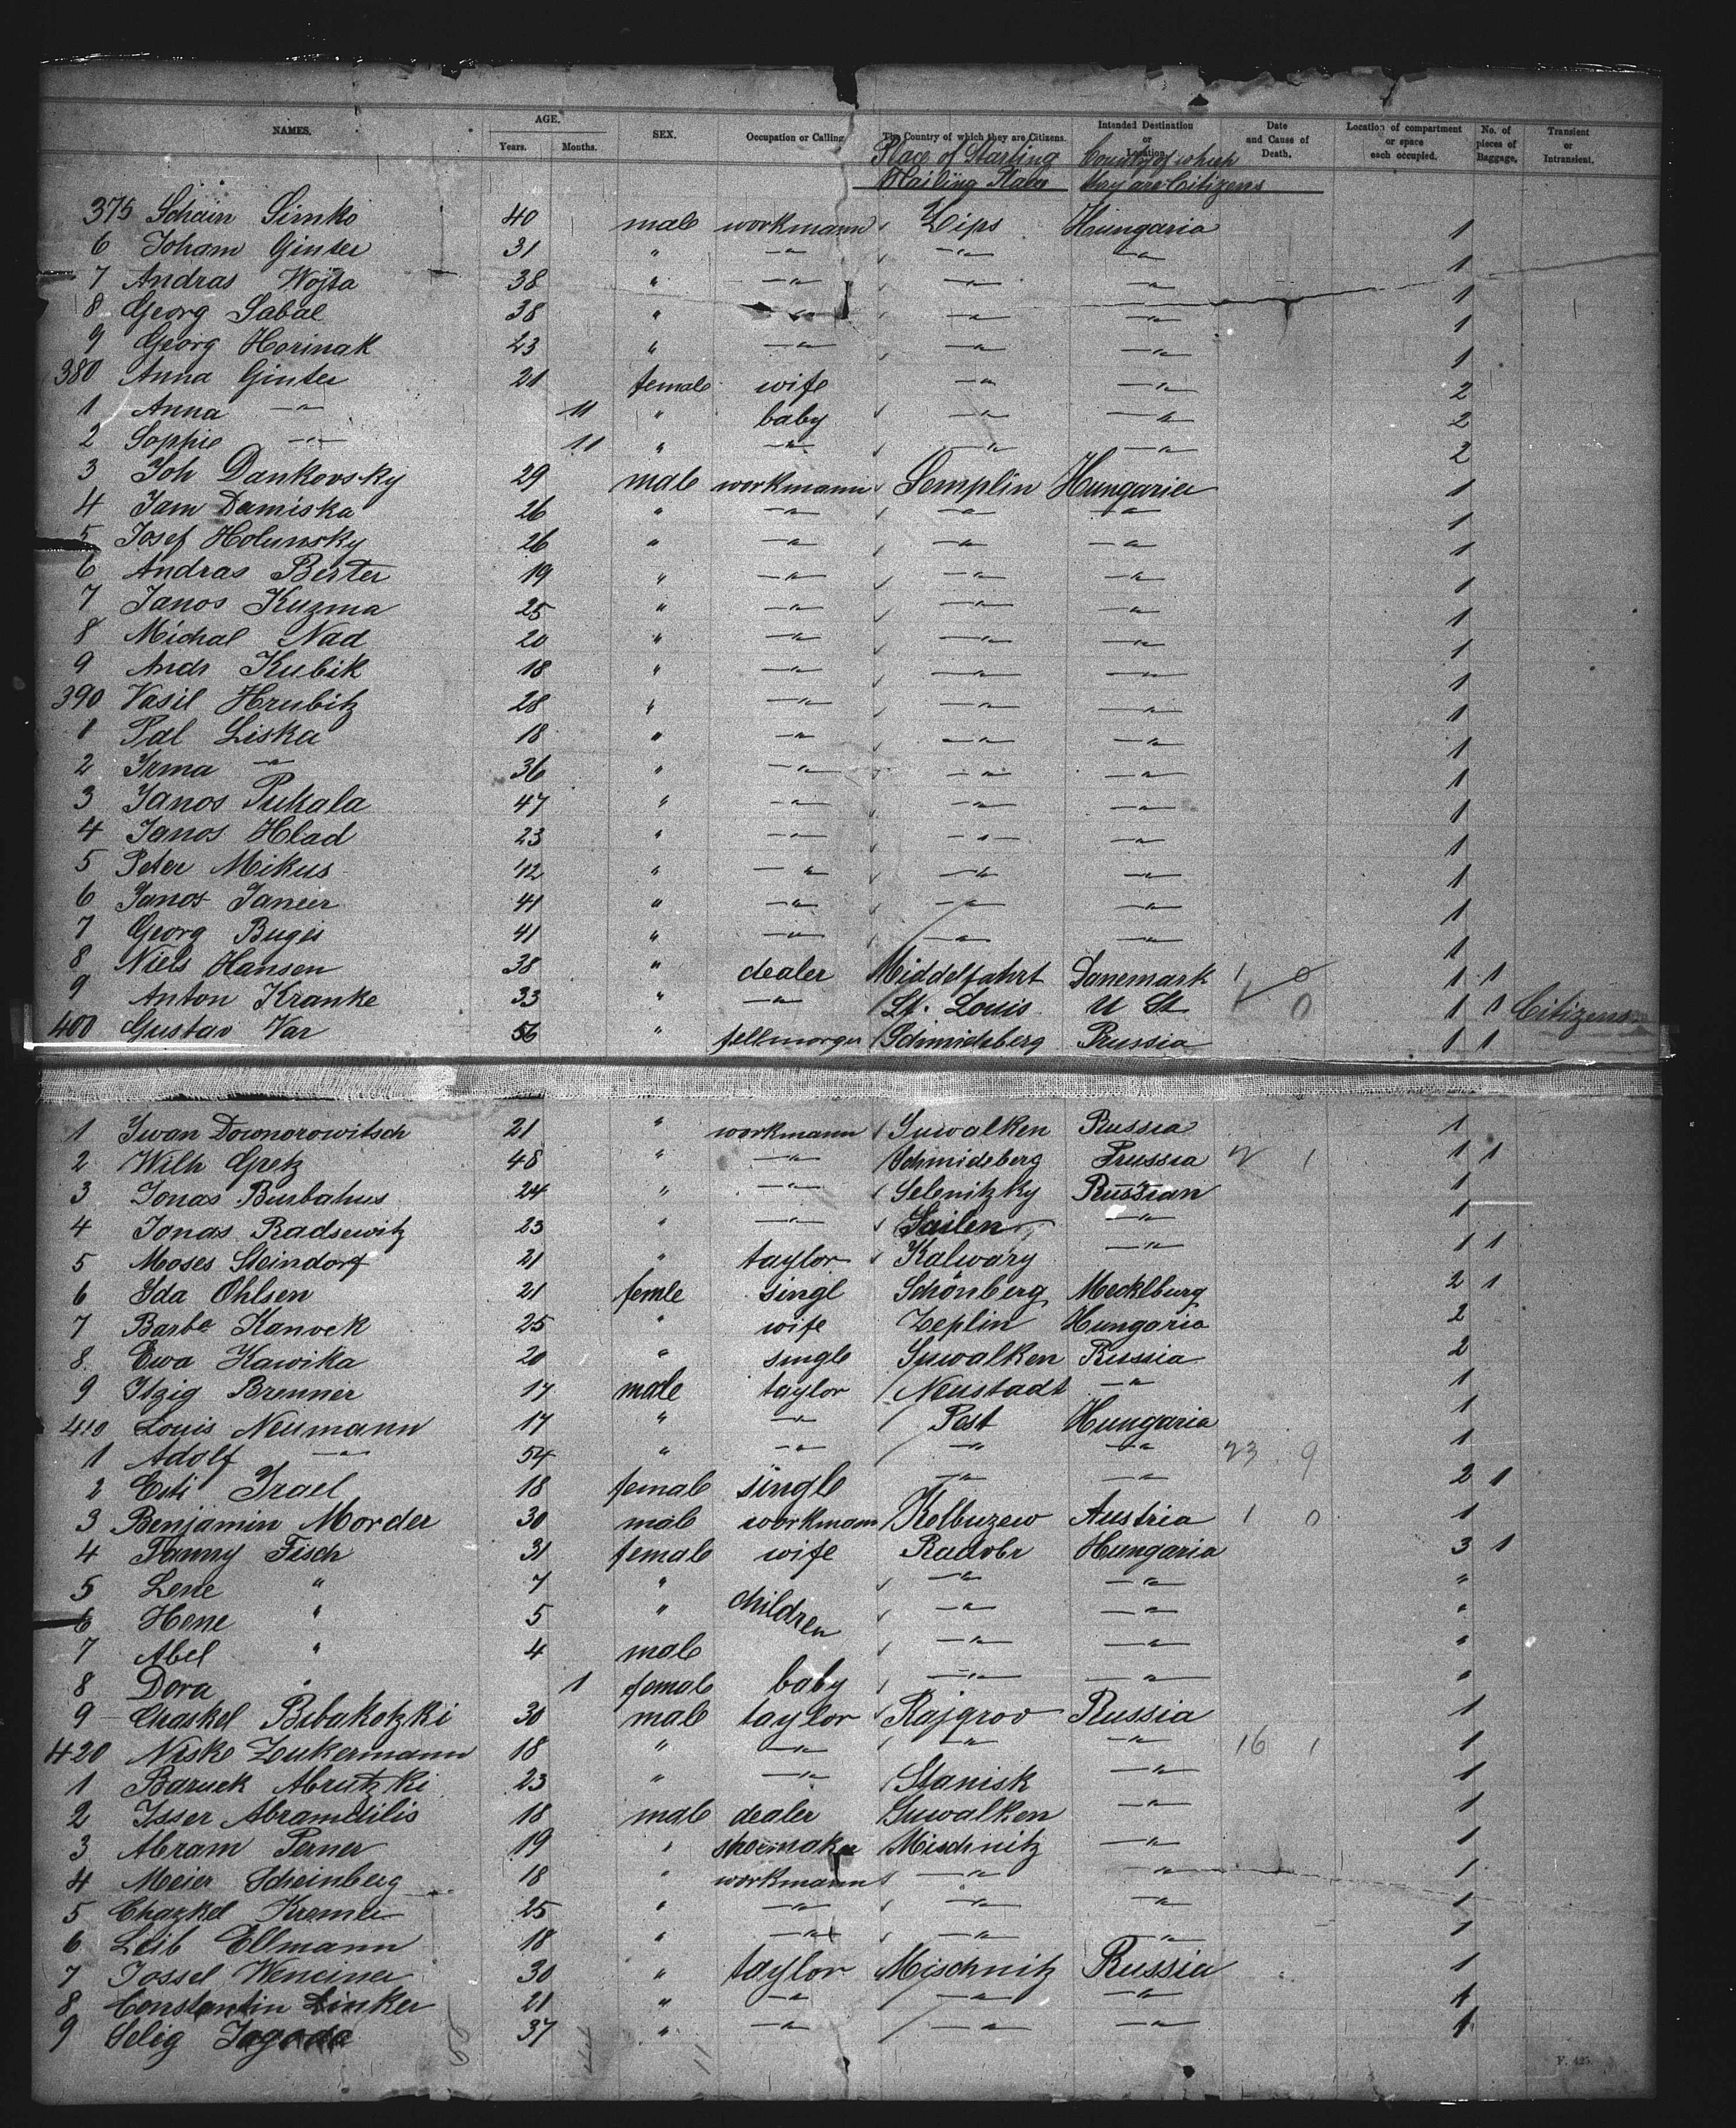 NAMES. AGE. Years. Months. SEX. Occupation or Calling. The Country of which they are Citizens. Intended Destination or Location. Date and Cause of Death. Location of compartment or space each occupied. No. of pieces of Baggage. Transient or Intransient.
Place of Starting Country of which
Mailing Place they are Citizens
375 Schain Simko 40 male workmann Zips Hungaria 1
6 Joham Ginter 31 " —"— —"— —"— 1
7 Andras Wojta 38 " —"— —"— —"— 1
8 Georg Sabal 38 " —"— —"— —"— 1
9 Georg Horinak 23 " —"— —"— —"— 1
380 Anna Ginter 21 female wife —"— —"— 2
1 Anna —"— 11 " baby —"— —"— 2
2 Sophie —"— 11 " —"— —"— —"— 2
3 Joh Dankovsky 29 male workmann Semplin Hungaria 1
4 Jam Damiska 26 " —"— —"— —"— 1
5 Josef Holunsky 26 " —"— —"— —"— 1
6 Andras Berter 19 " —"— —"— —"— 1
7 Janos Kuzma 25 " —"— —"— —"— 1
8 Michal Nad 20 " —"— —"— —"— 1
9 Andr Kubik 18 " —"— —"— —"— 1
390 Vasil Hrubitz 28 " —"— —"— —"— 1
1 Pal Liska 18 " —"— —"— —"— 1
2 Irma —"— 36 " —"— —"— —"— 1
3 Janos Pukala 47 " —"— —"— —"— 1
4 Janos Hlad 23 " —"— —"— —"— 1
5 Peter Mikus 42 " —"— —"— —"— 1
6 Janos 41 " —"— —"— —"— 1
7 Georg Buges 41 " —"— —"— —"— 1
8 Niels Hansen 38 " dealer Middelfahrt Danemark 1 0 1 1
9 Anton Kranke 33 " —"— St. Louis U St 1 0 1 1 Citizens
400 Gustav Var 56 " fellmonger Schmideberg Prussia 1 1
1 Iwan Downorowitsch 21 " workmann Suwalken Russia 1
2 Wilh Gretz 48 " —"— Schmideberg Prussia 2 1 1 1
3 Jonas Burbahus 24 " —"— Selenitzky Russian 1
4 Jonas Radsewitz 23 " —"— Sailen —"— 1
5 Moses Steindorf 21 " taylor Kalwary —"— 1 1
6 Ida Ohlsen 21 femle singl Schönberg Mecklburg 2 1
7 Barba Kanvek 25 " wife Zeplin Hungaria 2
8 Ewa Kawika 20 " single Suwalken Russia 2
9 Itzig Brenner 17 male taylor Neustadt —"— 1
410 Louis Neumann 17 " —"— Pest Hungaria 1
1 Adolf —"— 54 " —"— —"— —"— 23 9 1
2 Esti Israel 18 female single —"— —"— 2 1
3 Benjamin Morder 30 male workmann Kolbuzew Austria 1 0 1
4 Fanny Fisch 31 female wife Radobr Hungaria 3 1
5 Lene " 7 " children —"— —"— "
6 Hene " 5 " —"— —"— "
7 Abel " 4 male —"— —"— "
8 Dora " 1 female baby —"— —"— "
9 Chaskel Bibakotzki 30 male taylor Rajgrod Russia 1
420 Niske Zukermann 18 " —"— —"— —"— 16 1 1
1 Baruch Abrutzki 23 " —"— Stanisk —"— 1
2 Isser Abramtulis 18 male dealer Suwalken —"— 1
3 Abram Perner 19 " shoemaker Mischnitz —"— 1
4 Meier Scheinberg 18 " workmann —"— —"— 1
5 Chazkel Kremer 25 " —"— —"— —"— 1
6 Leib Ellmann 18 " —"— —"— —"— 1
7 Jossel Wenciner 30 " taylor Mischnitz Russia 1
8 Constantin Linker 21 " —"— —"— —"— 1
9 Selig Jagoda 37 " —"— —"— —"— 1
F. 425.